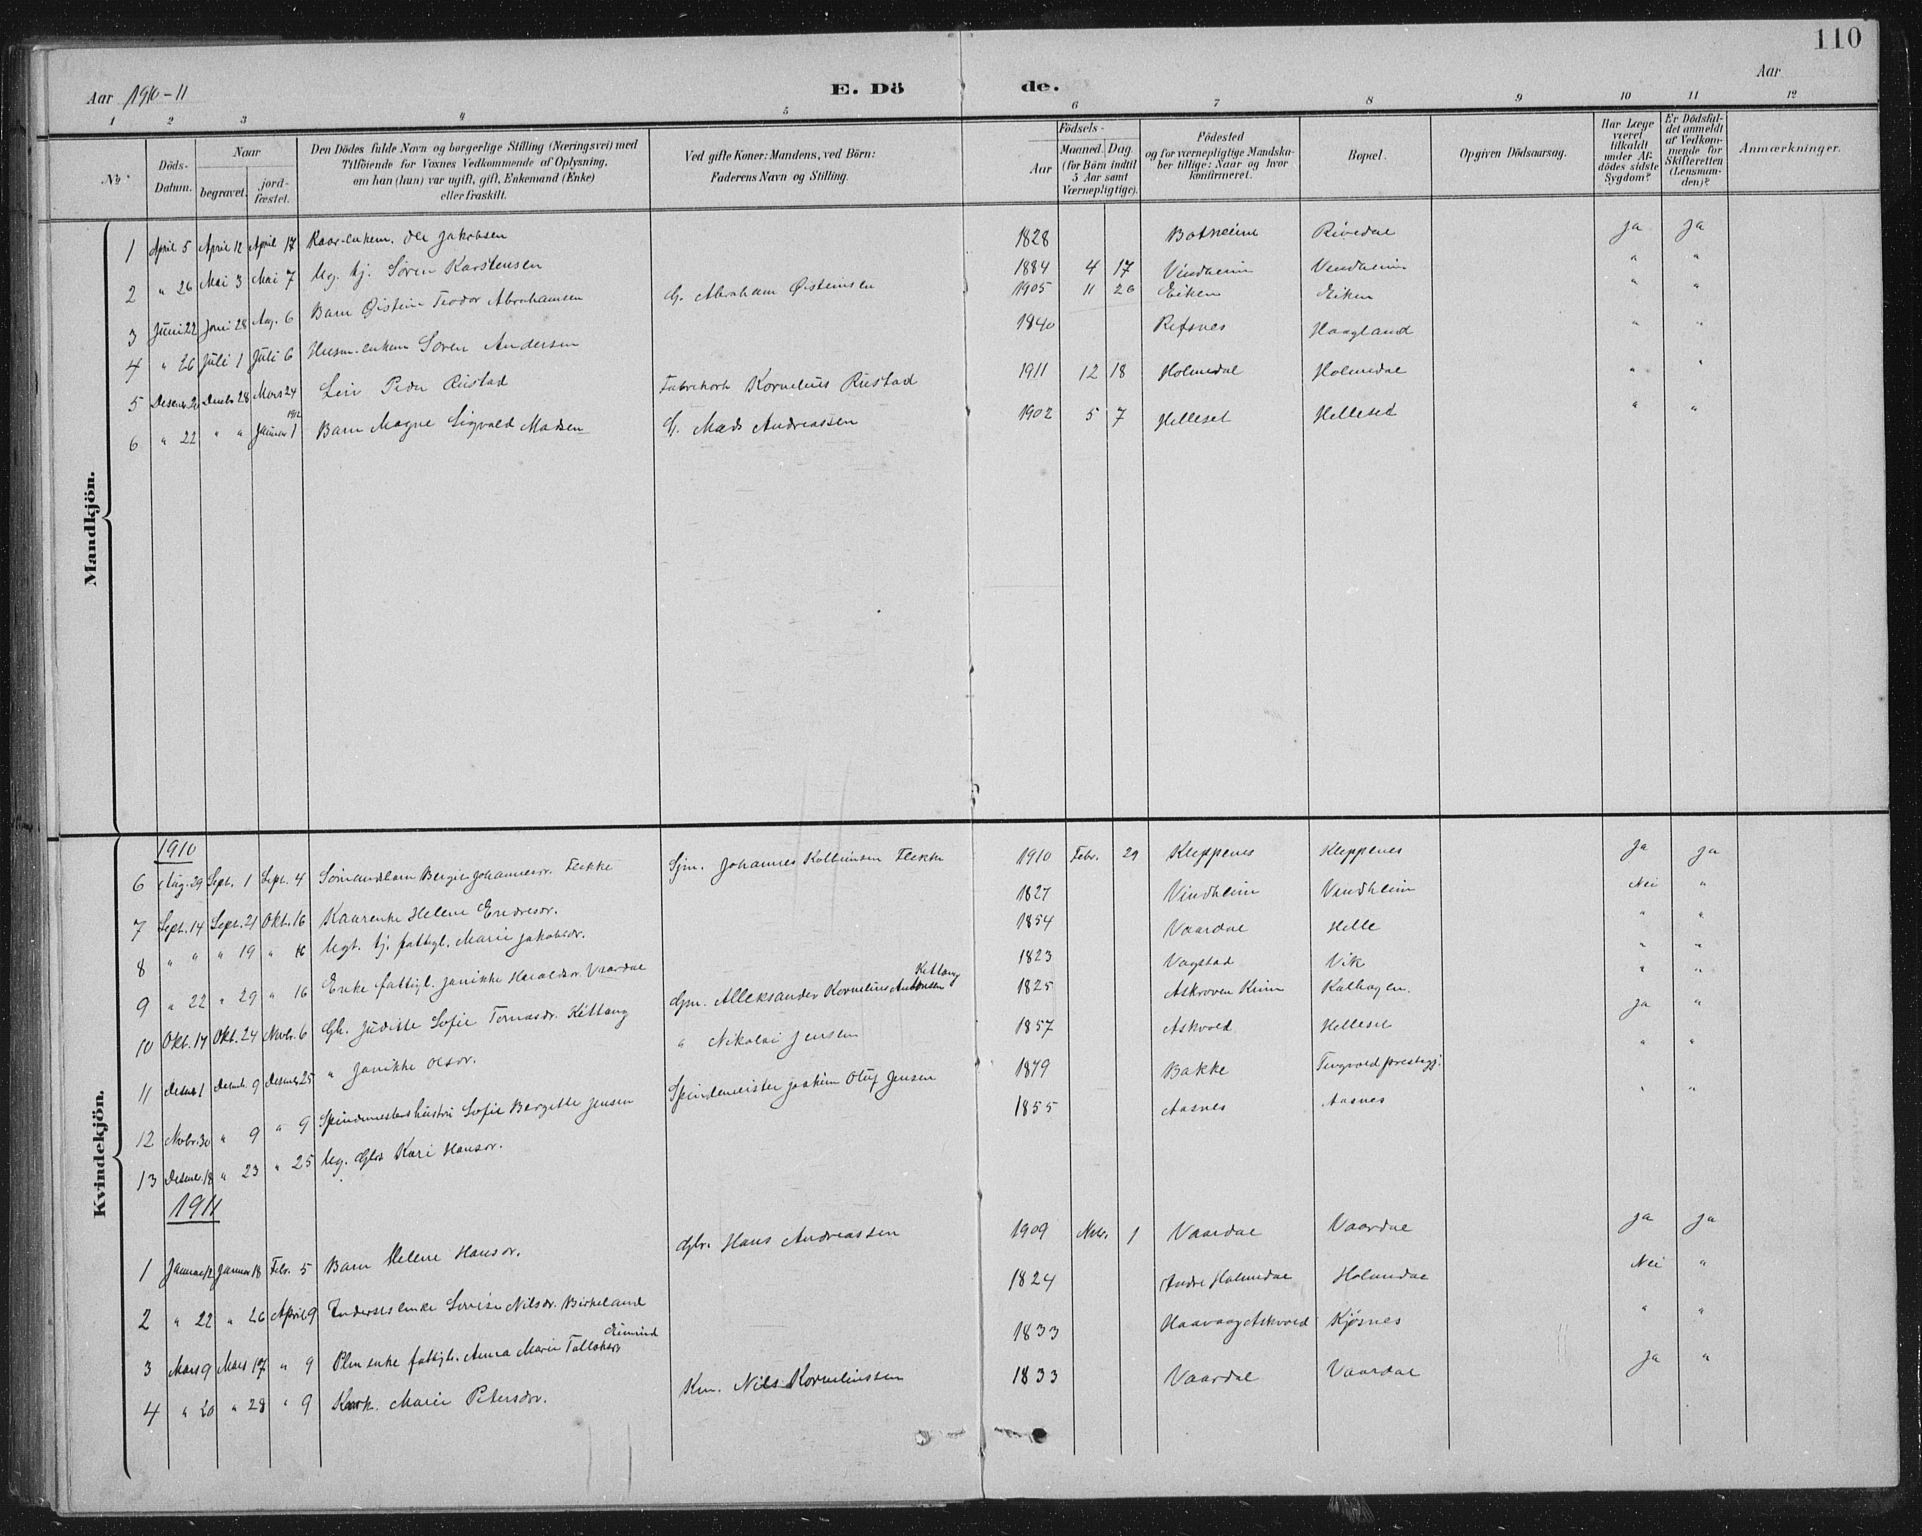 110
Aar 1910-11 E. Dö de. Aar
1 2 3 4 5 6 7 8 9 10 11 12
No. Döds-Datum. Naar begravet. jord-fæstet. Den Dödes fulde Navn og borgerlige Stilling (Næringsvei) med Tilföiende for Voxnes Vedkommende af Oplysning, om han (hun) var ugift, gift, Enkemand (Enke) eller fraskilt. Ved gifte Koner: Mandens, ved Börn: Faderens Navn og Stilling. Födsels- Aar Maaned. Dag. (for Börn indtil 5 Aar samt Værnepligtige). Födested og for værnepligtige Mandskaber tillige: Naar og hvor konfirmeret. Bopæl. Opgiven Dödsaarsag. Har Læge været tilkaldt under Afdödes sidste Sygdom? Er Dödsfaldet anmeldt af Vedkommende for Skifteretten (Lensmanden)? Anmærkninger.
Mandkjön.
1 April 5 April 12 April 17 Kaarenkem. Ole Jakobsen 1828 Botneim Rivedal Ja Ja
2 " 26 Mai 3 Mai 7 Ug. tj. Søren Karstensen 1884 4 17 Vindheim Vindheim " "
3 Juni 22 Juni 28 Aug. 6 Barn Øistein Teodor Abrahamsen G. Abraham Øisteinsen 1905 11 26 Eiken Eiken " "
4 " 26 Juli 1 Juli 6 Husm.enkem Søren Andersen 1840 Refsnes Haagland " "
5 Desembr 20 Desembr 28 Mars 24 Leiv Peder Rustad Fabrikarb Kornelius Rustad 1911 12 18 Holmedal Holmedal " "
6 " 22 " " Januar 1 1912 Barn Magne Sigvald Madsen G. Mads Andreassen 1902 5 7 Helleset Helleset " "
Kvindekjön.
1910
6 Aug. 29 Sept. 1 Sept. 4 Sømandsbarn Bergit Johannesdr. Flekke Sjm. Johannes Kolbeinsen Flekke 1910 Febr. 29 Kleppenes Kleppenes Ja Ja
7 Sept. 14 Sept. 21 Okt. 16 Kaarenke Helene Endresdr. 1827 Vindheim Vindheim Nei "
8 " " " 19 " 16 Ugt. tj. fattigl. Marie Jakobsdr. 1854 Vaardal Helle " "
9 " 22 " 29 " 16 Enke fattigl. Janikke Haraldsdr Vaardal 1823 Vagstad Vik " "
10 Okt. 17 Okt. 24 Novbr. 6 Gk. Juditte Sofie Tomasdr. Kittang Gm. Alleksander Kornelius Antonsen Kittang 1825 Askroven Kinn Kalhagen. " "
11 Desembr 1 Desemb. 9 Desembr 25 " Janikke Olsdr. " Nikolai Jensen 1857 Askvold Helleset Ja "
12 Novbr. 30 " 9 " 9 Spindemesterhustru Sofie Bergitte Jensen Spindemeister Joakim Oluf Jensen 1879 Bakke Tingvold prestegj. " "
13 Desembr 18 " 23 " 25 Ug. Gbr Kari Hansdr. 1855 Aasnes Aasnes " "
1911
1 Januar 12 Januar 18 Febr. 5 Barn Helene Hansdr. Gbr. Hans Andreassen 1909 Novbr. 1 Vaardal Vaardal Ja Ja
2 " 22 " 26 April 9 Inderstenke Lovise Nilsdr. Birkeland 1824 Indre Holmedal Holmedal Nei "
3 Mars 9 Mars 17 " 9 Plm enke fattigl. Anna Marie Tollaksdr 1833 Haavaag Askvold Kjøsnes " "
4 " 20 " 28 " 9 Kaark. Marie Petersdr. Km. Nils Korneliussen 1833 Vaardal Vaardal Ja "